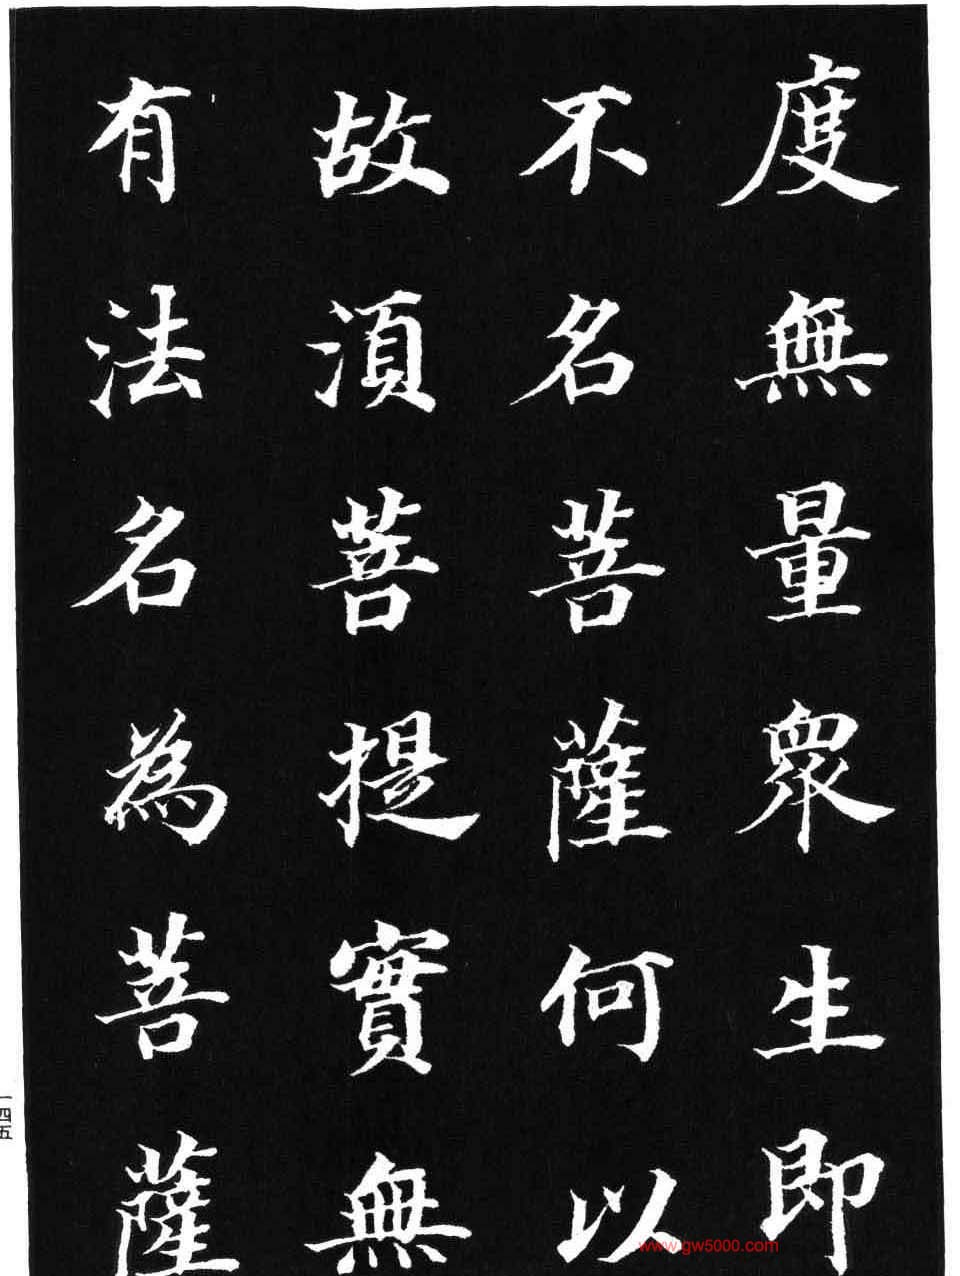 度無量衆生即
不名菩薩何以
故湏菩提實無
有法名為菩薩
一四五
www.gw5000.com